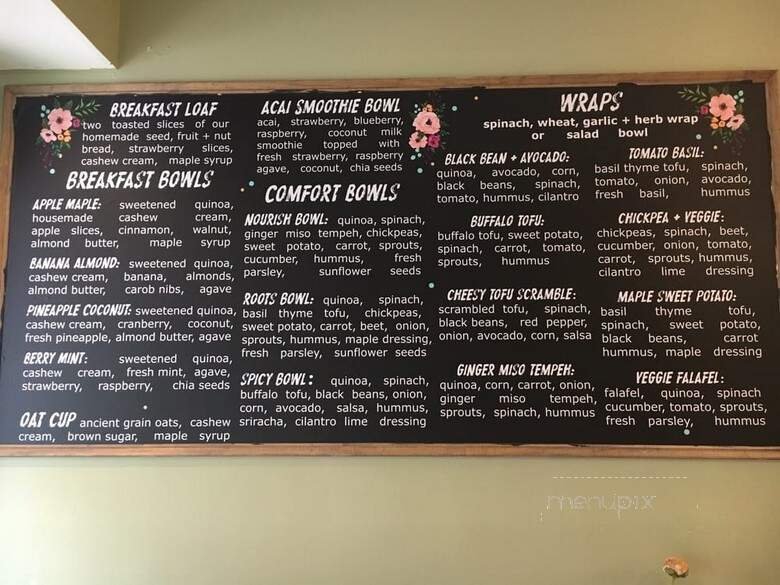 BREAKFAST LOAF
two toasted slices of our
homemade seed, fruit + nut
bread, strawberry slices,
cashew cream, maple syrup
BREAKFAST BOWLS
APPLE MAPLE: sweetened quinoa,
housemade cashew cream,
apple slices, cinnamon, walnut,
almond butter, maple syrup
BANANA ALMOND: sweetened quinoa,
cashew cream, banana, almonds,
almond butter, carob nibs, agave
PINEAPPLE COCONUT: sweetened quinoa,
cashew cream, cranberry, coconut,
fresh pineapple, almond butter, agave
BERRY MINT: sweetened quinoa,
cashew cream, fresh mint, agave,
strawberry, raspberry, chia seeds
OAT CUP ancient grain oats, cashew
cream, brown sugar, maple syrup
ACAI SMOOTHIE BOWL
acai, strawberry, blueberry,
raspberry, coconut milk
smoothie topped with
fresh strawberry, raspberry
agave, coconut, chia seeds
COMFORT BOWLS
NOURISH BOWL: quinoa, spinach,
ginger miso tempeh, chickpeas,
sweet potato, carrot, sprouts,
cucumber, hummus, fresh
parsley, sunflower seeds
ROOTS BOWL: quinoa, spinach,
basil thyme tofu, chickpeas,
sweet potato, carrot, beet, onion,
sprouts, hummus, maple dressing,
fresh parsley, sunflower seeds
SPICY BOWL: quinoa, spinach,
buffalo tofu, black beans, onion,
corn, avocado, salsa, hummus,
sriracha, cilantro lime dressing
WRAPS
spinach, wheat, garlic + herb wrap
or salad bowl
BLACK BEAN + AVOCADO:
quinoa, avocado, corn,
black beans, spinach,
tomato, hummus, cilantro
BUFFALO TOFU:
buffalo tofu, sweet potato,
spinach, carrot, tomato,
sprouts, hummus
CHEESY TOFU SCRAMBLE:
scrambled tofu, spinach,
black beans, red pepper,
onion, avocado, corn, salsa
GINGER MISO TEMPEH:
quinoa, corn, carrot, onion,
ginger miso tempeh,
sprouts, spinach, hummus
TOMATO BASIL:
basil thyme tofu, spinach,
tomato, onion, avocado,
fresh basil, hummus
CHICKPEA + VEGGIE:
chickpeas, spinach, beet,
cucumber, onion, tomato,
carrot, sprouts, hummus,
cilantro lime dressing
MAPLE SWEET POTATO:
basil thyme tofu,
spinach, sweet potato,
black beans, carrot
hummus, maple dressing
VEGGIE FALAFEL:
falafel, quinoa, spinach
cucumber, tomato, sprouts,
fresh parsley, hummus
menupix